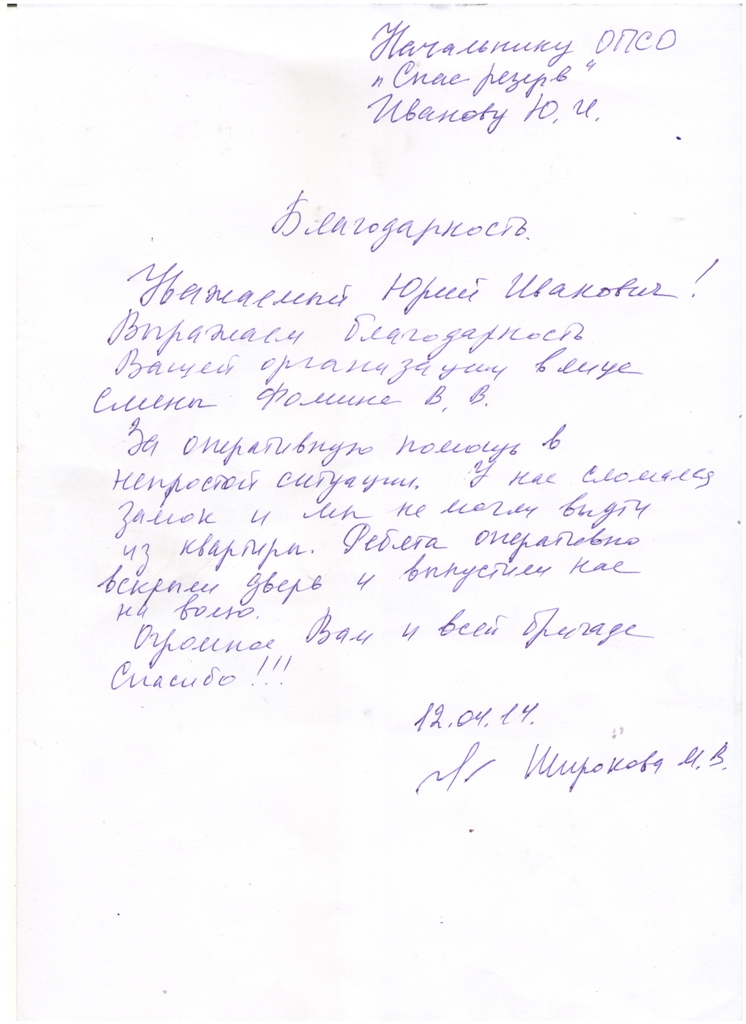 Начальнику ОПСО
"Спас резерв"
Иванову Ю. И.
Благодарность.
Уважаемый Юрий Иванович!
Выражаем благодарность
Вашей организации в лице
смены Фомина В. В.
За оперативную помощь в
непростой ситуации. У нас сломался
замок и мы не могли выдти
из квартиры. Ребята оперативно
вскрыли дверь и выпустили нас
на волю.
Огромное Вам и всей бригаде
Спасибо!!!
12.04.14.
Широкова М. В.